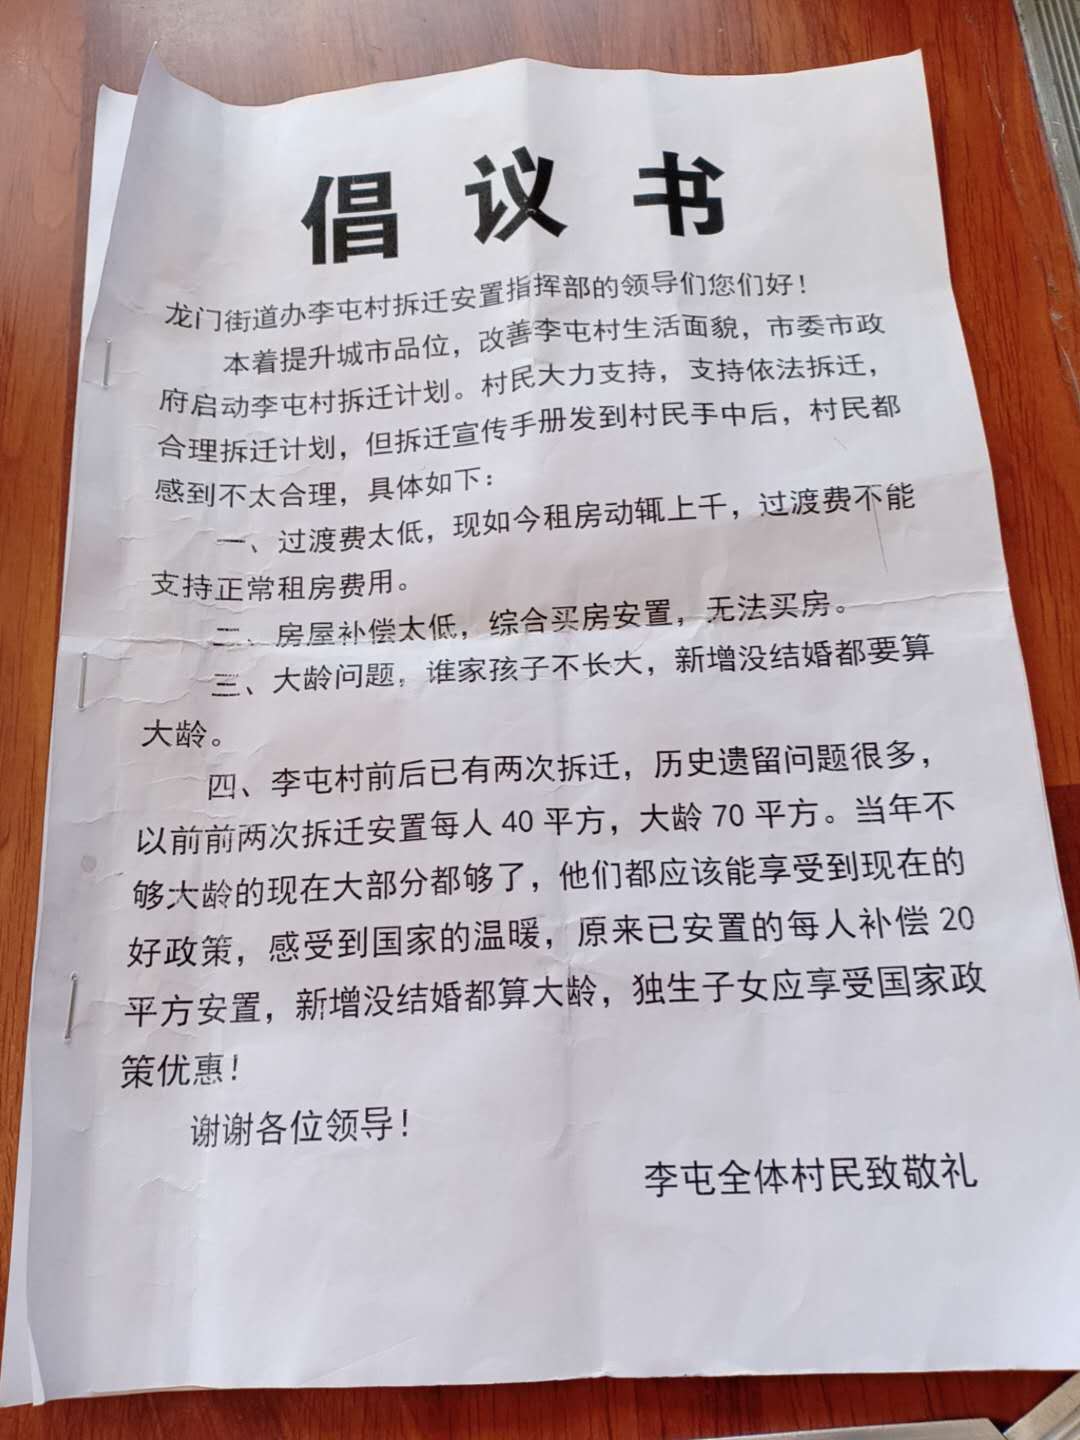 倡议书
龙门街道办李屯村拆迁安置指挥部的领导们您们好！
本着提升城市品位，改善李屯村生活面貌，市委市政
府启动李屯村拆迁计划。村民大力支持，支持依法拆迁，
合理拆迁计划，但拆迁宣传手册发到村民手中后，村民都
感到不太合理，具体如下：
一、过渡费太低，现如今租房动辄上千，过渡费不能
支持正常租房费用。
二、房屋补偿太低，综合买房安置，无法买房。
三、大龄问题，谁家孩子不长大，新增没结婚都要算
大龄。
四、李屯村前后已有两次拆迁，历史遗留问题很多，
以前前两次拆迁安置每人40平方，大龄70平方。当年不
够大龄的现在大部分都够了，他们都应该能享受到现在的
好政策，感受到国家的温暖，原来已安置的每人补偿20
平方安置，新增没结婚都算大龄，独生子女应享受国家政
策优惠！
谢谢各位领导！
李屯全体村民致敬礼